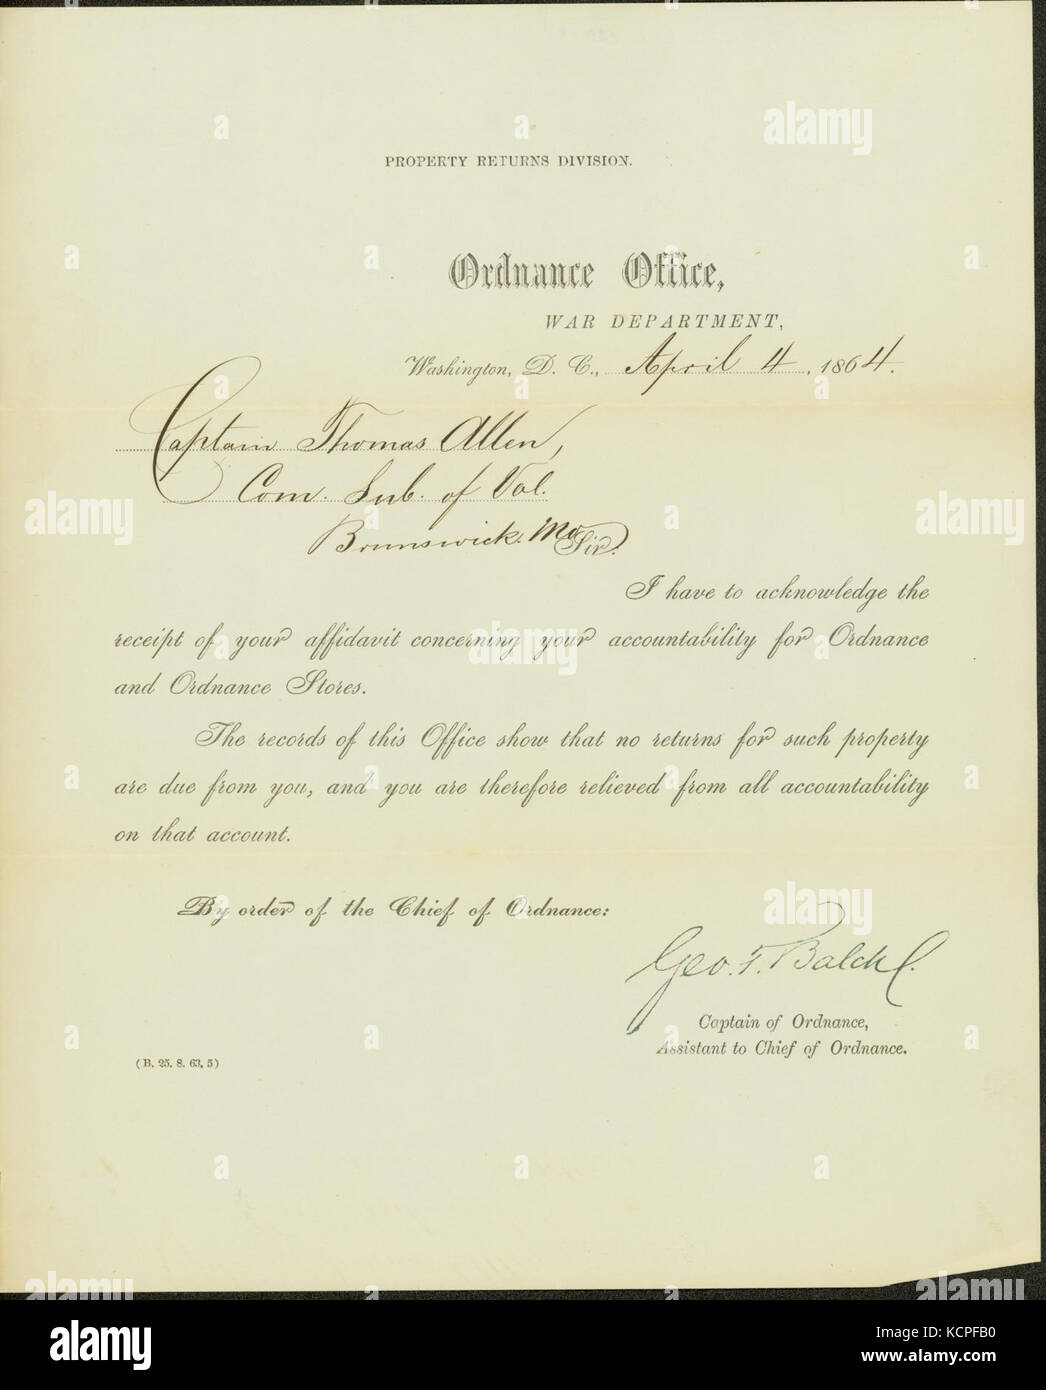 PROPERTY RETURNS DIVISION.
Ordnance Office,
WAR DEPARTMENT,
Washington, D. C., April 4, 1864.
Captain Thomas Allen,
Com. Sub. of Vol.
Brunswick. Mo
Sir:
I have to acknowledge the
receipt of your affidavit concerning your accountability for Ordnance
and Ordnance Stores.
The records of this Office show that no returns for such property
are due from you, and you are therefore relieved from all accountability
on that account.
By order of the Chief of Ordnance:
Geo. T. Balch
Captain of Ordnance,
Assistant to Chief of Ordnance.
(B. 25. 8. 63, 5)
alamy
Image ID: KCPFB0
www.alamy.com